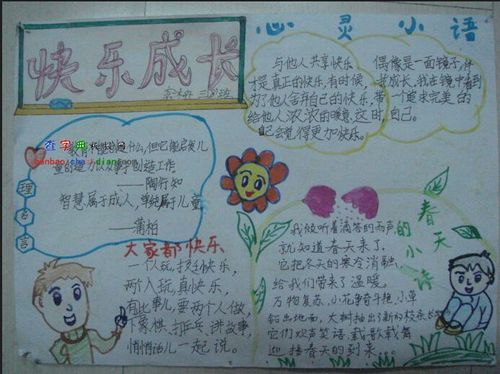 快乐成长
心灵小语
与他人共享快乐
才是真正的快乐,有时候
为了他舍弃自己的快乐,带
给他人浓浓的暖意,这时,
自己会觉得更加快乐。
偶像是一面镜子,伴
我成长,我在镜中看到
一个追求完美的
自己。
理
名言
教育不能创造什么,但它能启发儿
童创造力以从事于创造工作
——陶行知
智慧属于成人,单纯属于儿童
——蒲柏
大家都快乐
一个人玩,
两个人玩真快乐,
有些事儿,要两个人做,
下象棋、打乒乓、讲故事,
悄悄话儿一起说。
春天的小诗
我倾听着滴答的雨声,
就知道春天来了,
它把冬天的寒冷消融,
给我们带来了温暖,
万物复苏,小花争奇斗艳,小草
钻出地面,大树抽出了新的枝条
它们欢声笑语,载歌载舞
迎接春天的到来……